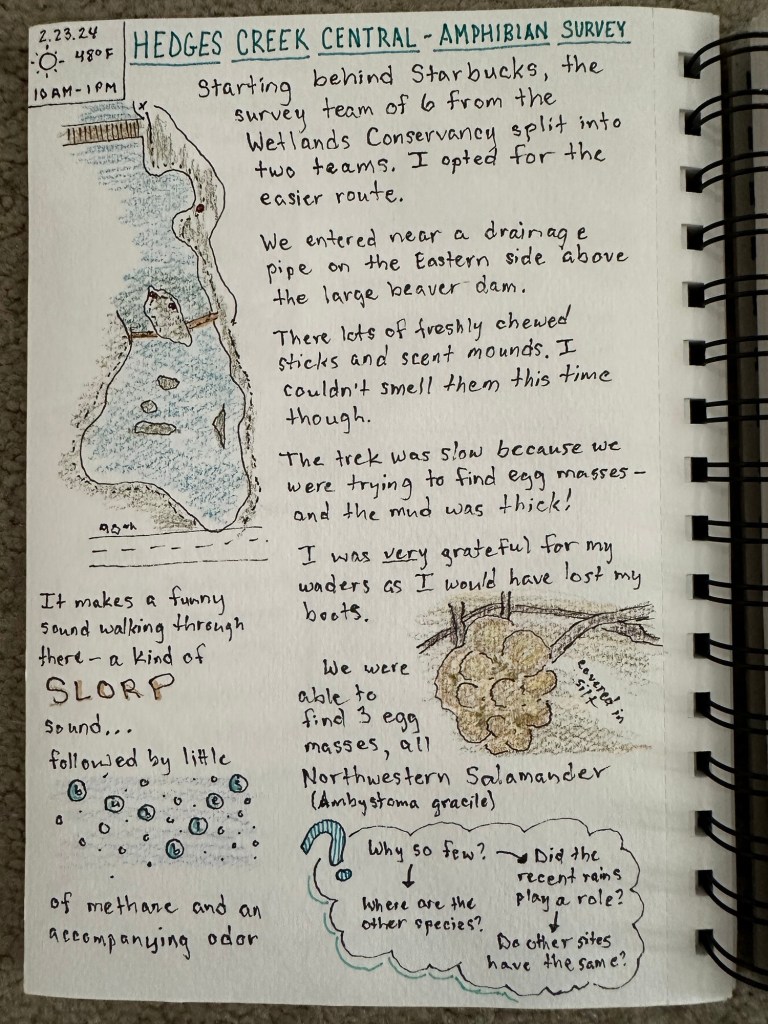 2.23.24
48°F
10AM-1PM
HEDGES CREEK CENTRAL - AMPHIBIAN SURVEY
Starting behind Starbucks, the
survey team of 6 from the
Wetlands Conservancy split into
two teams. I opted for the
easier route.
We entered near a drainage
pipe on the Eastern side above
the large beaver dam.
There lots of freshly chewed
sticks and scent mounds. I
couldn't smell them this time
though.
The trek was slow because we
were trying to find egg masses -
and the mud was thick!
I was very grateful for my
waders as I would have lost my
boots.
It makes a funny
sound walking through
there - a kind of
SLORP
sound...
followed by little
b u b b l e s
of methane and an
accompanying odor
We were
able to
find 3 egg
masses, all
Northwestern Salamander
(Ambystoma gracile)
covered in
silt
?
Why so few? → Did the
recent rains
play a role?
↓
Where are the
other species?
↓
Do other sites
have the same?